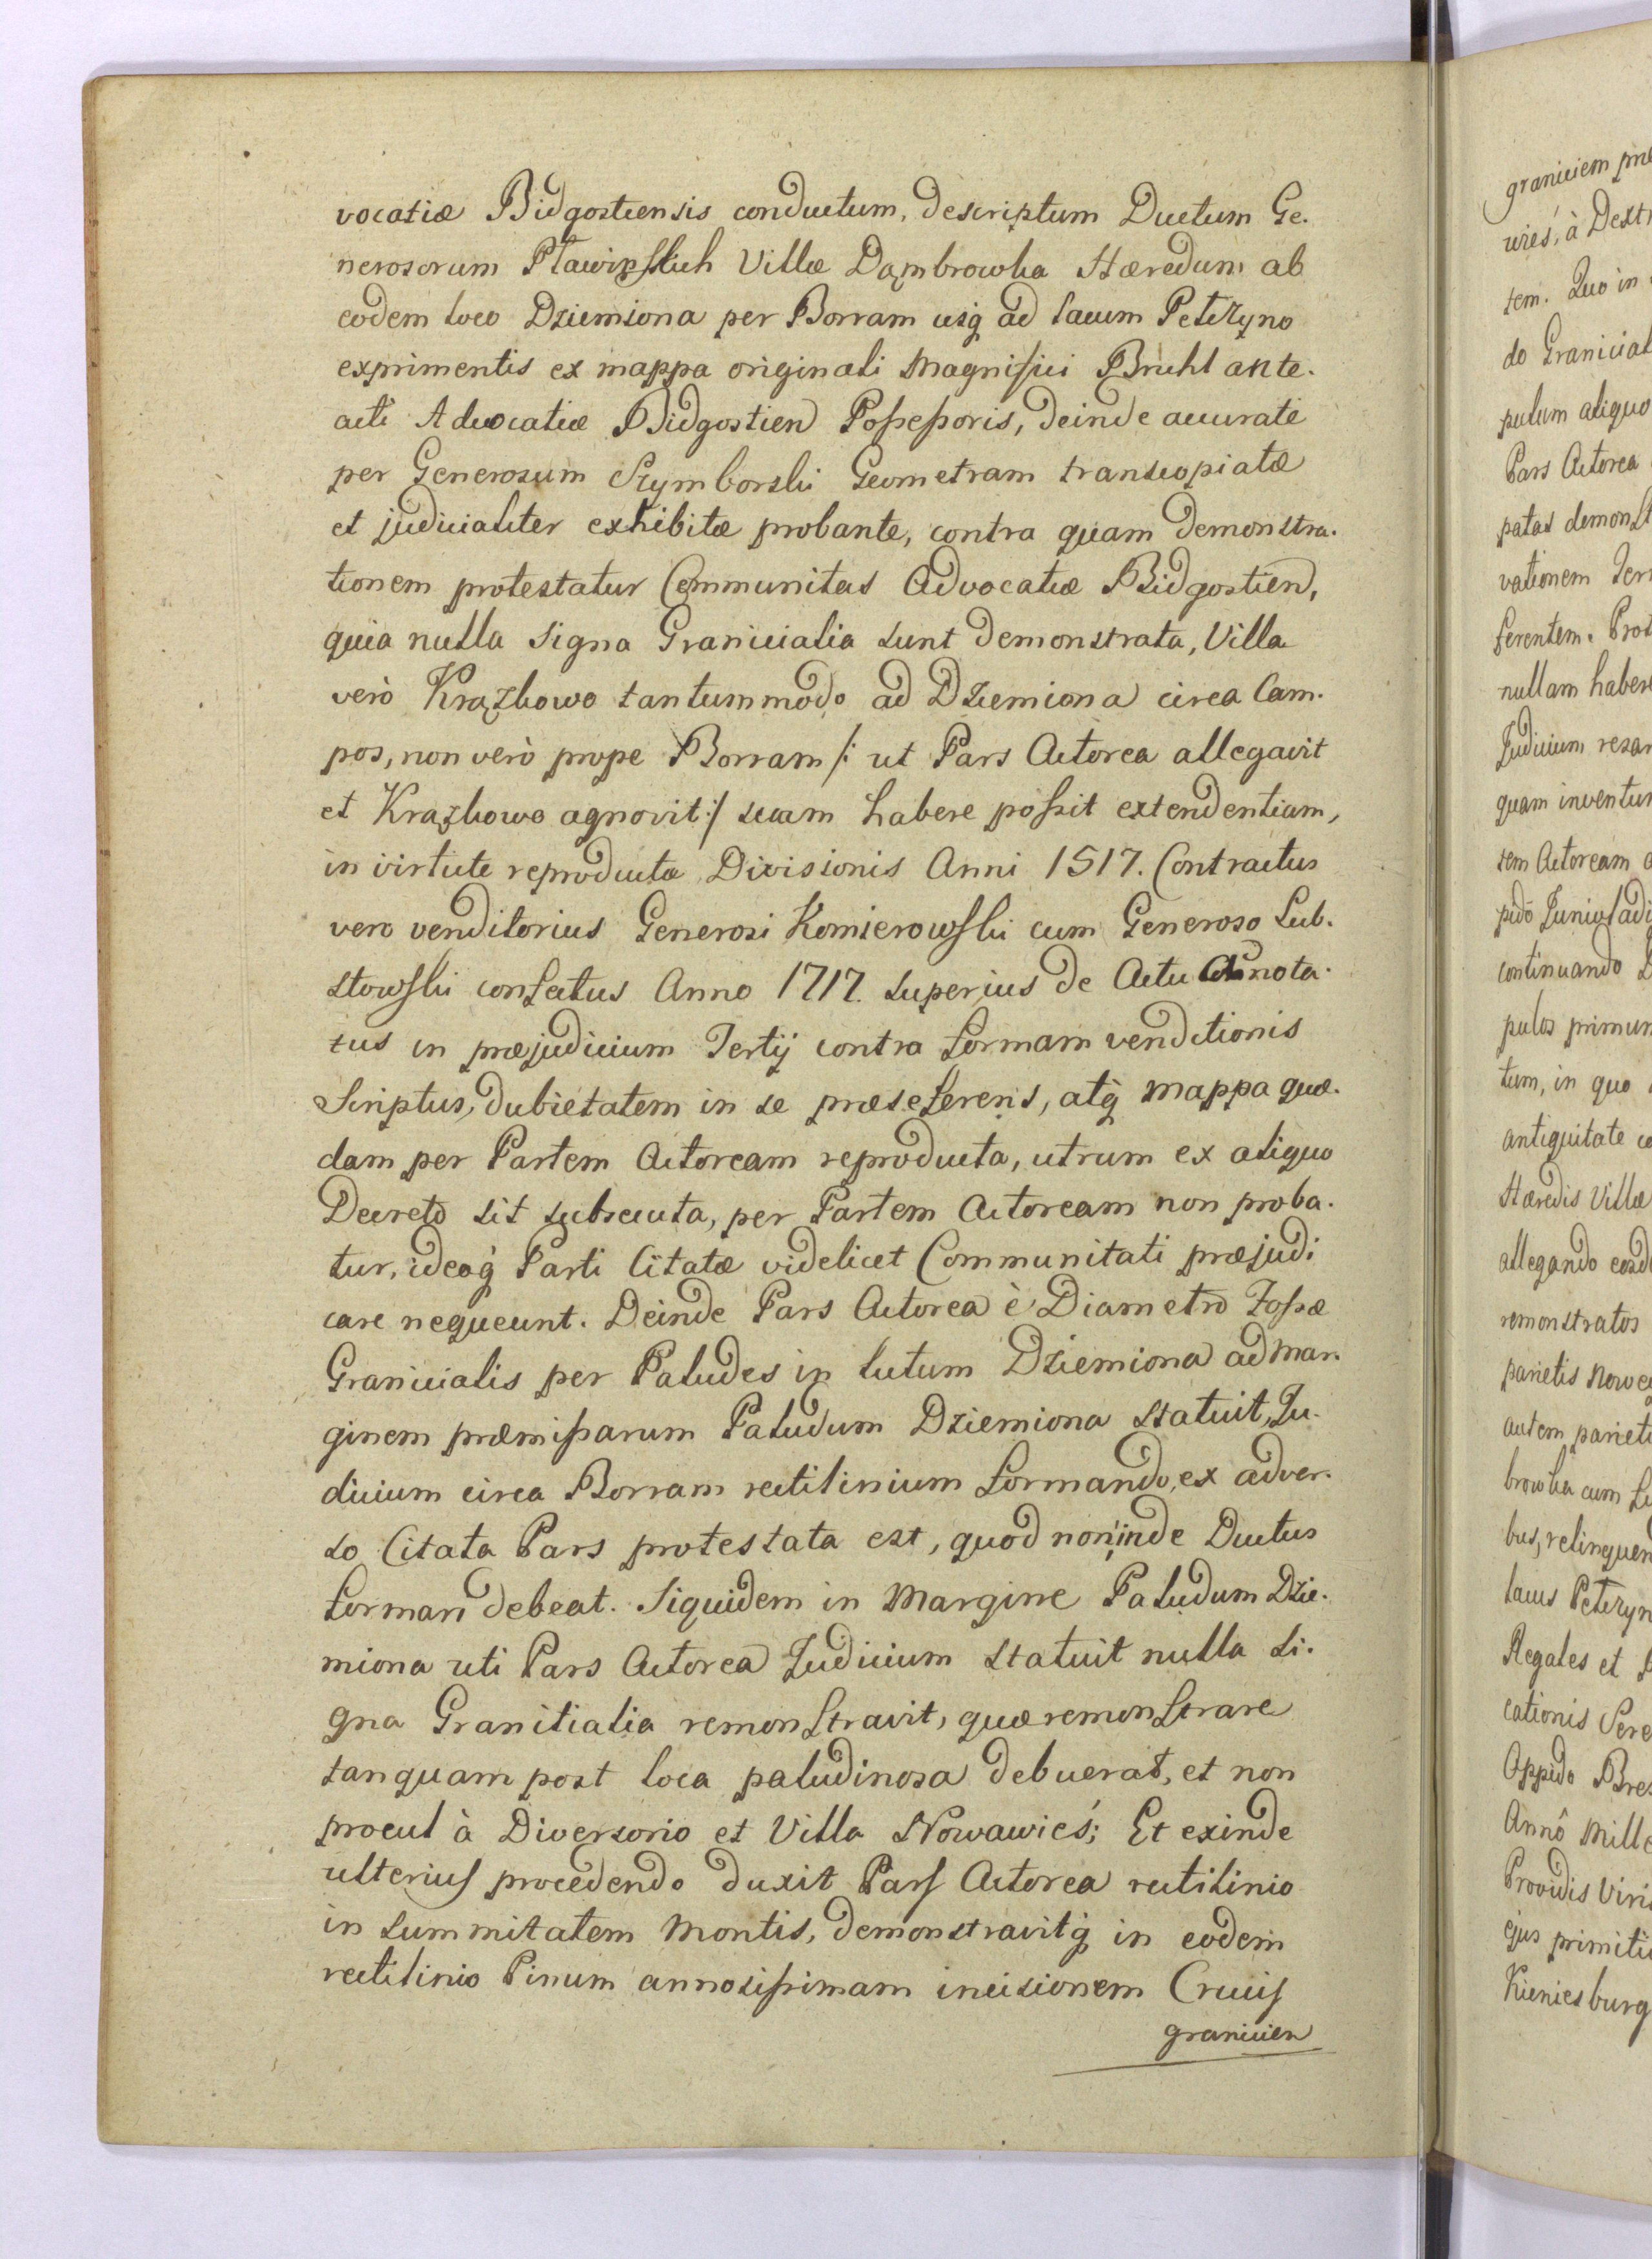 vocatiæ Bidgostiensis conductum, descriptum Ductum Ge.
nerosorum Pławińskich Villæ Dąmbrowka Hæredum ab
eodem loco Dziemiona per Borram usq ad lacum Petrzyno
exprimentis ex mappa originali Magnifici Bruhl ante.
acti Advocatiæ Bidgostien Possessoris, deinde accurate
per Generosum Szymborski Geometram transcopiatæ
et judicialiter exhibitæ probante, contra quam demonstra.
tionem protestatur Communitas Advocatiæ Bidgostien,
quia nulla signa Granicialia sunt demonstrata, Villa
verò Krążkowo tantummodo ad Dziemiona circa Cam.
pos, non verò prope Borram /: ut Pars Actorea allegavit
et Krążkowo agnovit :/ suam habere possit extendentiam,
in virtute reproductæ Divisionis Anni 1517. Contractus
vero venditorius Generosi Komierowski cum Generoso Lub.
stowski confectus Anno 1717. superius de Actu Adnota.
tus in præjudicium Tertij contra formam venditionis
Scriptus, dubietatem in se præseferens, atq mappa quæ.
dam per Partem Actoream reproducta, utrum ex aliquo
Decreto sit subsecuta, per Partem Actoream non proba.
tur, ideoq Parti Citatæ videlicet Communitati præjudi
care nequeunt. Deinde Pars Actorea è Diametro Fossæ
Granicialis per Paludes in lutum Dziemiona ad mar.
ginem præmissarum Paludum Dziemiona statuit, Ju.
dicium circa Borram rectilinium formando, ex adver.
so Citata Pars protestata est, quod non inde Ductus
formari debeat. Siquidem in Margine Paludum Dzie.
miona uti Pars Actorea Judicium statuit nulla si.
gna Granitialia remonstravit, quæ remonstrare
tanquam post loca paludinosa debuerat, et non
procul à Diversorio et Villa Nowawieś; Et exinde
ulterius procedendo duxit Pars Actorea rectilinio
in summitatem Montis, demonstravitq in eodem
rectilinio Pinum annosissimam incisionem Crucis
granicien
graniciem
wieś, à Dext
tem. Quo in
do Granicial
pulum aliquo
Pars Actorea
patas demonst
vationem
ferentem.
nullam haber
Judicium
quam inventu
tem Actoream
continuando
pulos primum
tum, in quo
antiquitate
Hæredis Villæ
allegando
remonstratos
parietis
autem pariet
browka cum
bus, relinquen
lacus Petrzyn
Regales et
cationis Sere
Oppido
Annô Mille
Providis Viris
ejus primiti
Kieniesburg